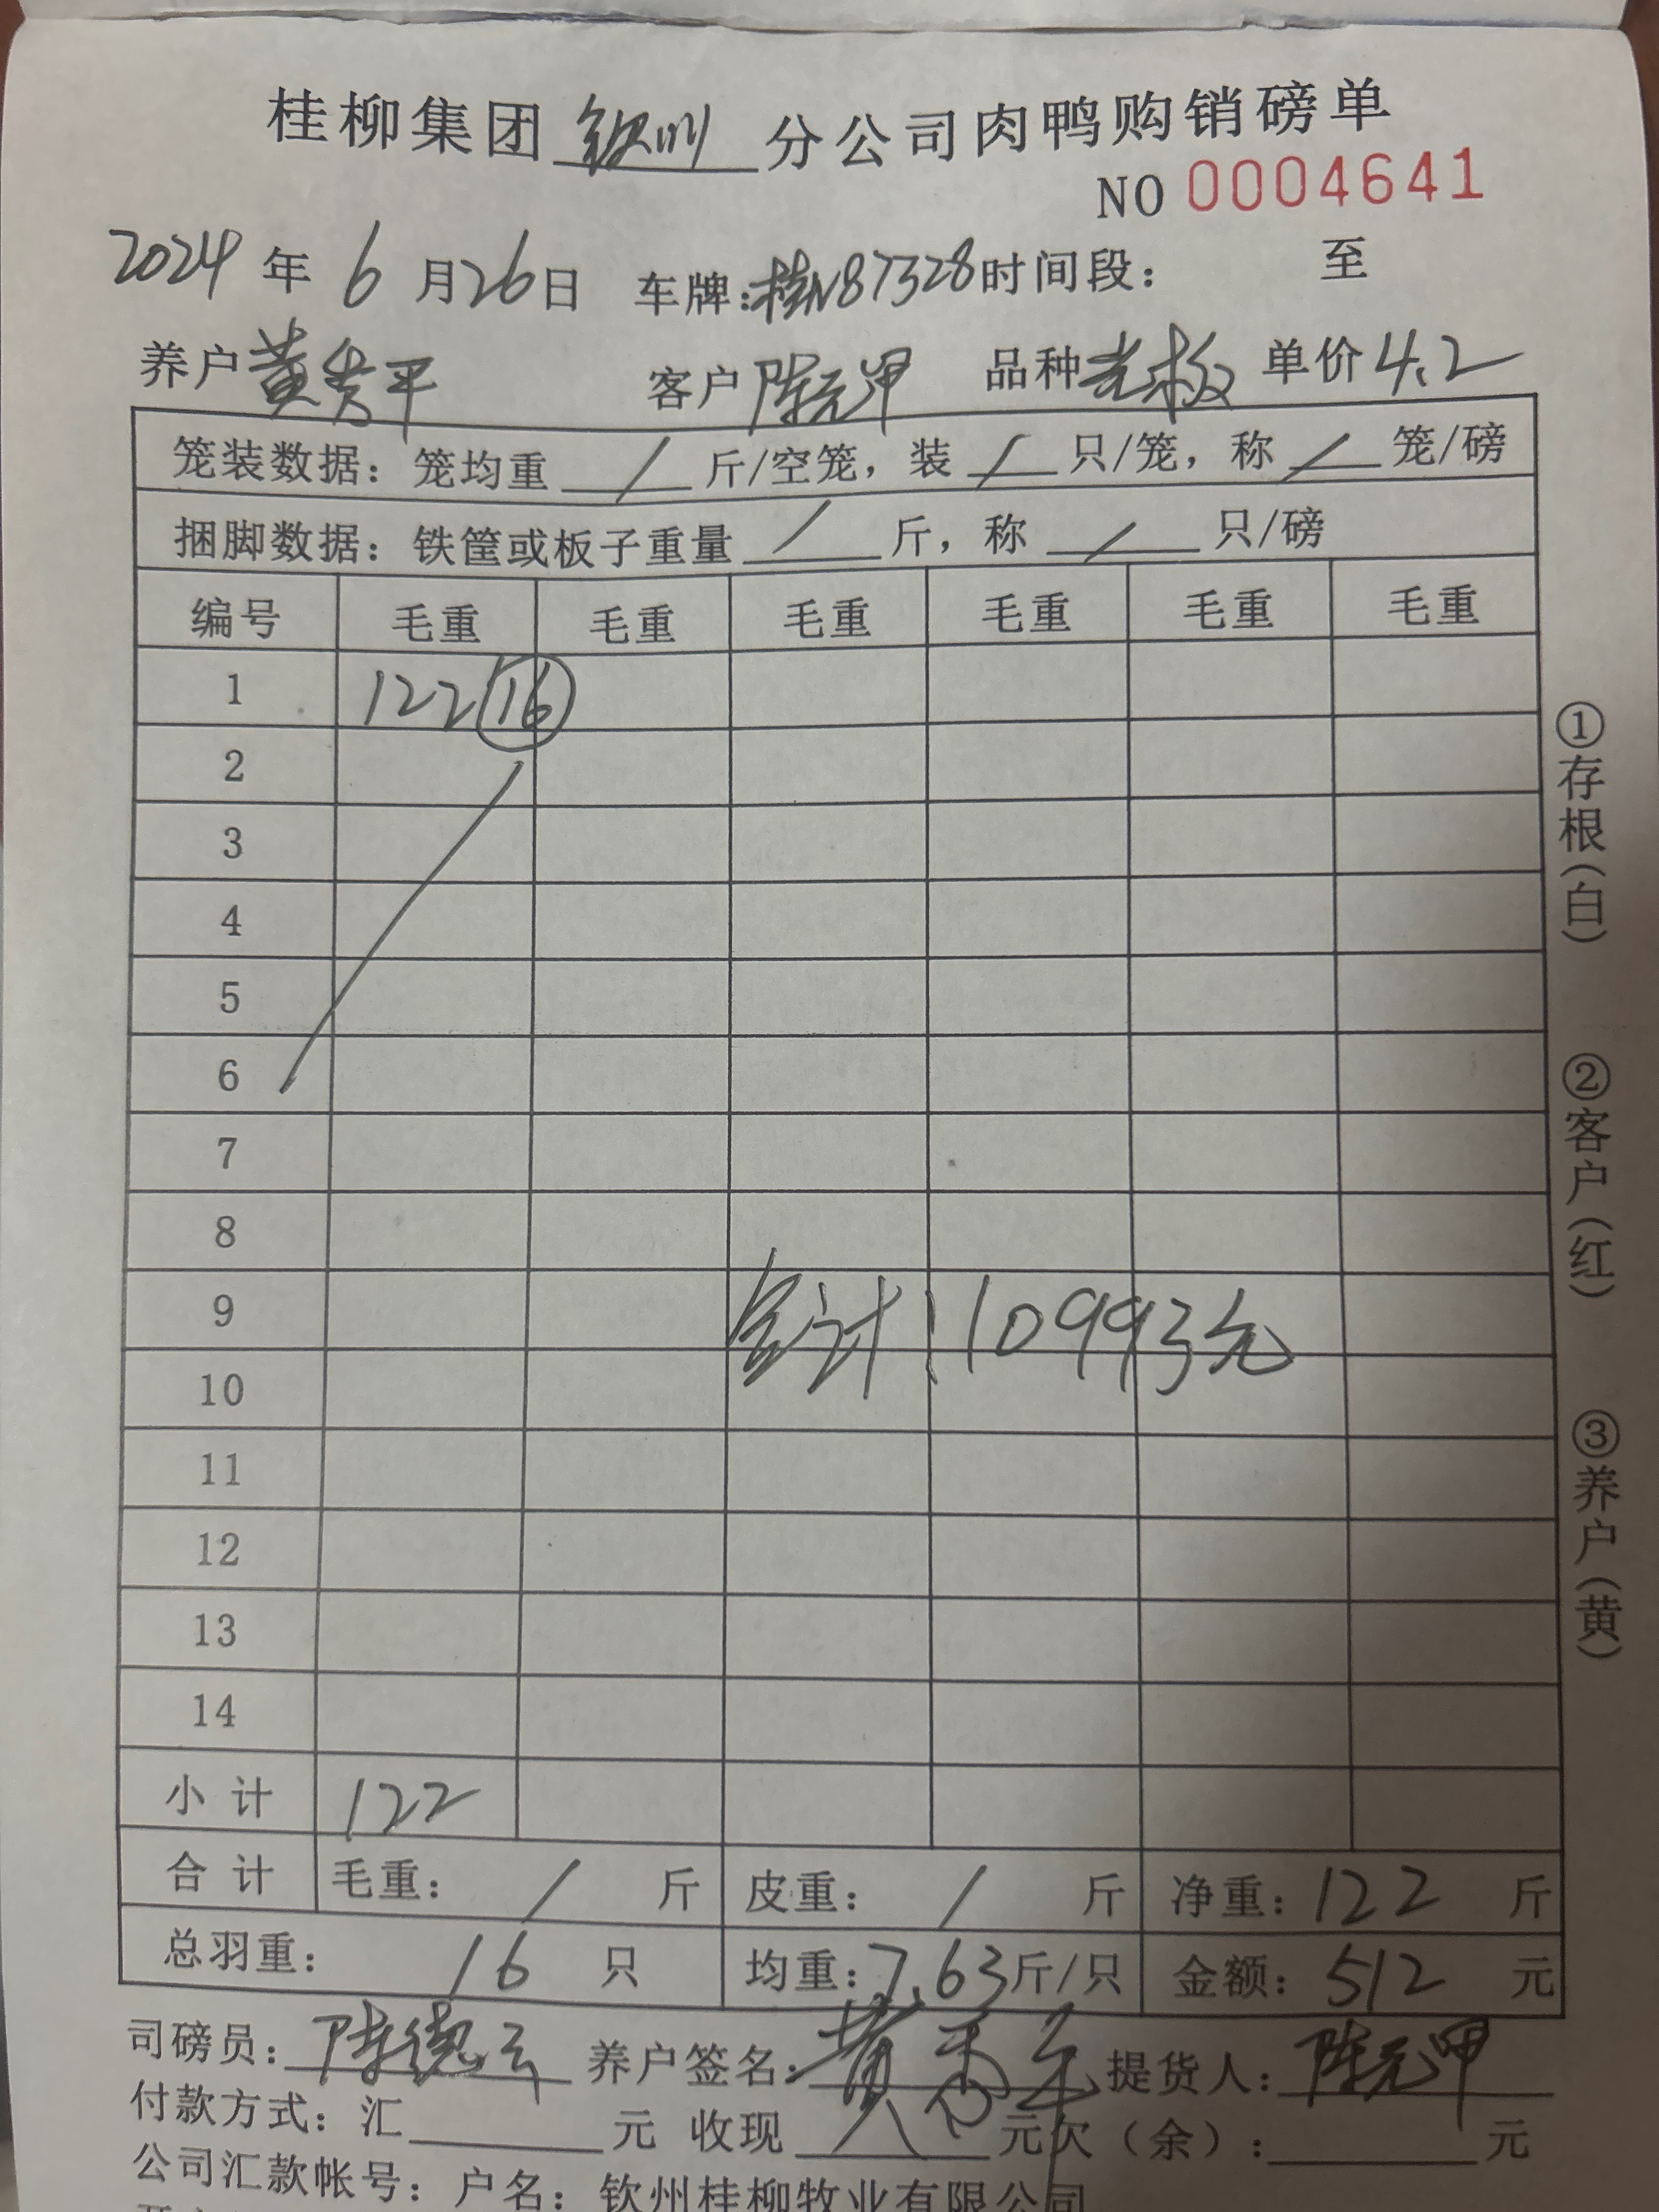 桂柳集团钦州分公司肉鸭购销磅单
NO 0004641
2024年6月26日 车牌:桂N87328时间段: 至
养户黄贵平 客户陈元甲 品种老板 单价4.2
笼装数据: 笼均重 / 斤/空笼, 装 / 只/笼, 称 / 笼/磅
捆脚数据: 铁筐或板子重量 / 斤, 称 / 只/磅
编号 毛重 毛重 毛重 毛重 毛重 毛重
1 122 16
2
3
4
5
6
7
8
9
合计:10993元
10
11
12
13
14
小计 122
合计 毛重: / 斤 皮重: / 斤 净重:122 斤
总羽重: 16 只 均重:7.63斤/只 金额:512 元
司磅员:陈德云 养户签名:黄 提货人:陈元甲
付款方式: 汇 元 收现 元欠(余): 元
公司汇款帐号: 户名: 钦州桂柳牧业有限公司
①存根(白)
②客户(红)
③养户(黄)